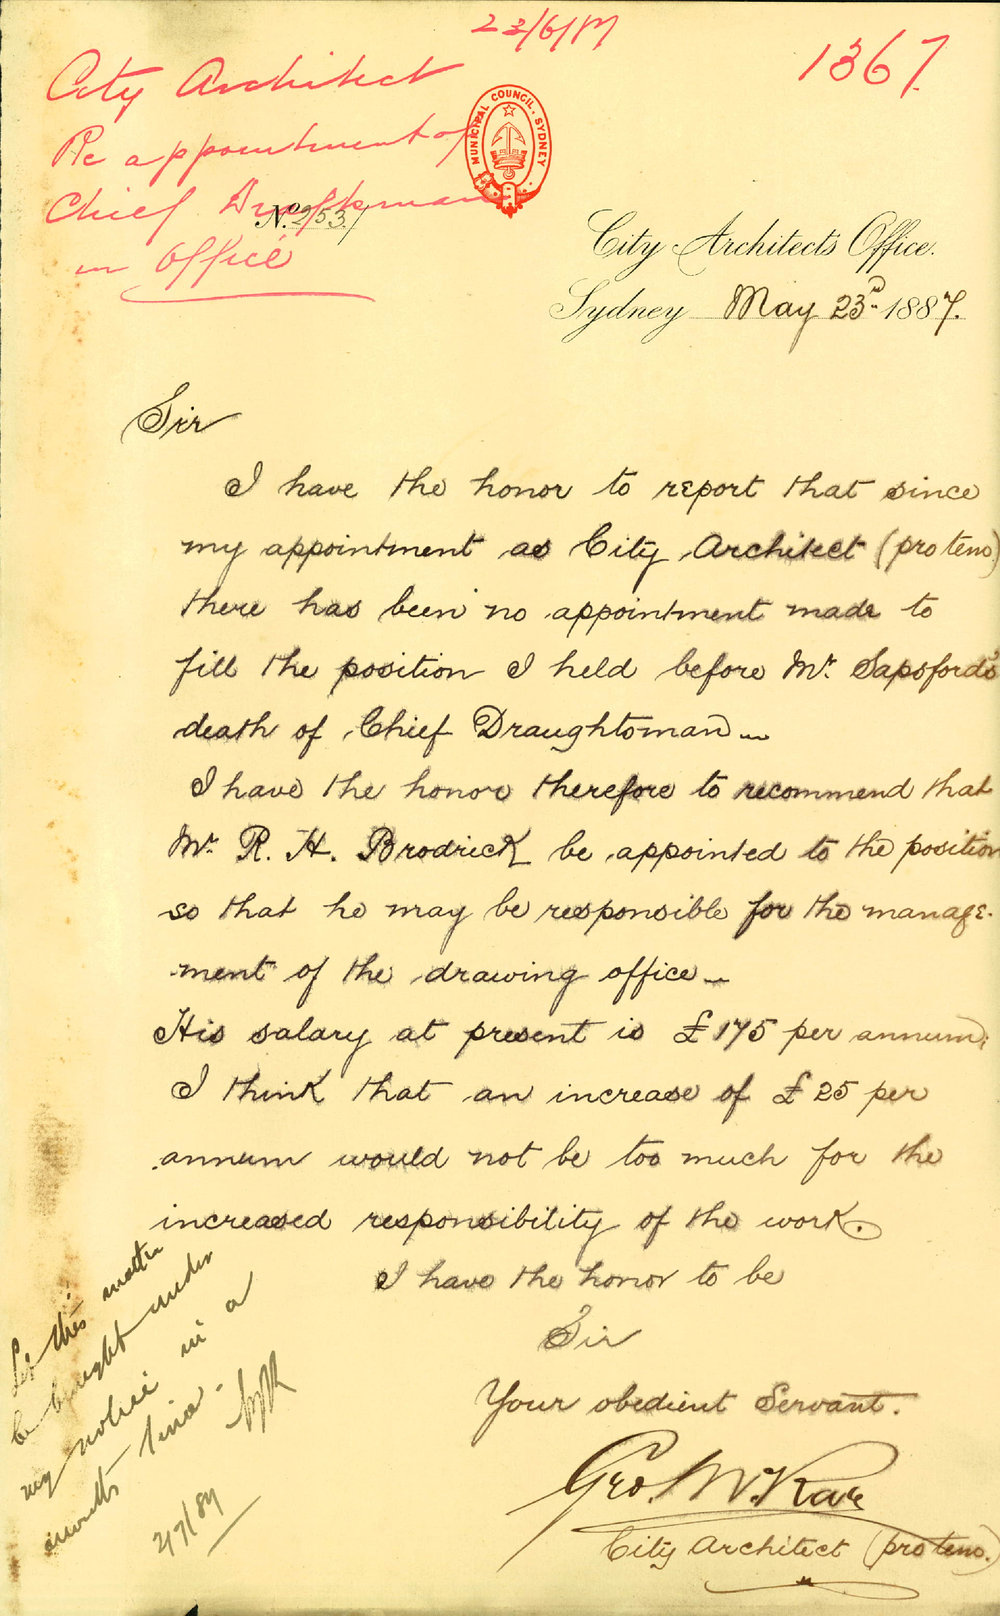 23/6/87
1367.
City Architect
Re appointment of
Chief Draftsman
in Office
MUNICIPAL COUNCIL. SYDNEY
No. 253/
City Architects Office.
Sydney May 23rd 1887.
Sir
I have the honor to report that since
my appointment as City Architect (pro tem.)
there has been no appointment made to
fill the position I held before Mr. Sapsford's
death of Chief Draughtsman —
I have the honor therefore to recommend that
Mr. R. H. Brodrick be appointed to the position
so that he may be responsible for the manage-
ment of the drawing office —
His salary at present is £175 per annum.
I think that an increase of £25 per
annum would not be too much for the
increased responsibility of the work.
I have the honor to be
Sir
Your obedient Servant.
Geo. McRae
City Architect (pro tem.)
Let this matter
be brought under
my notice in a
month's time.